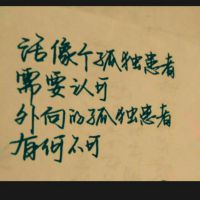 话像个孤独患者
需要认可
外向的孤独患者
有何不可